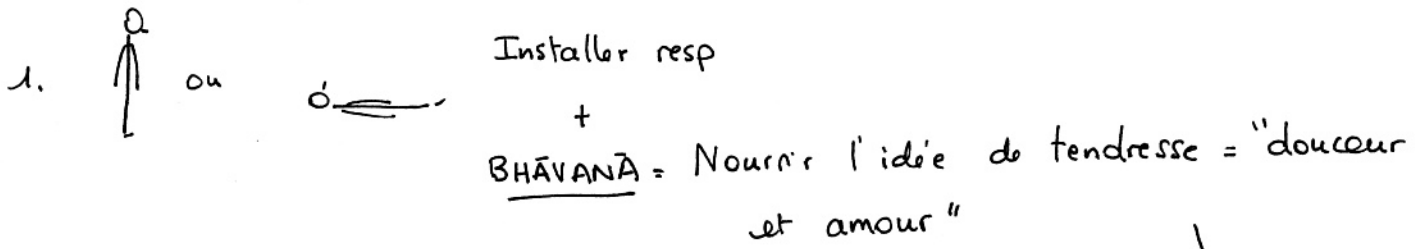 1. ou Installer resp
+
BHĀVANĀ = Nourrir l'idée de tendresse = "douceur
et amour"